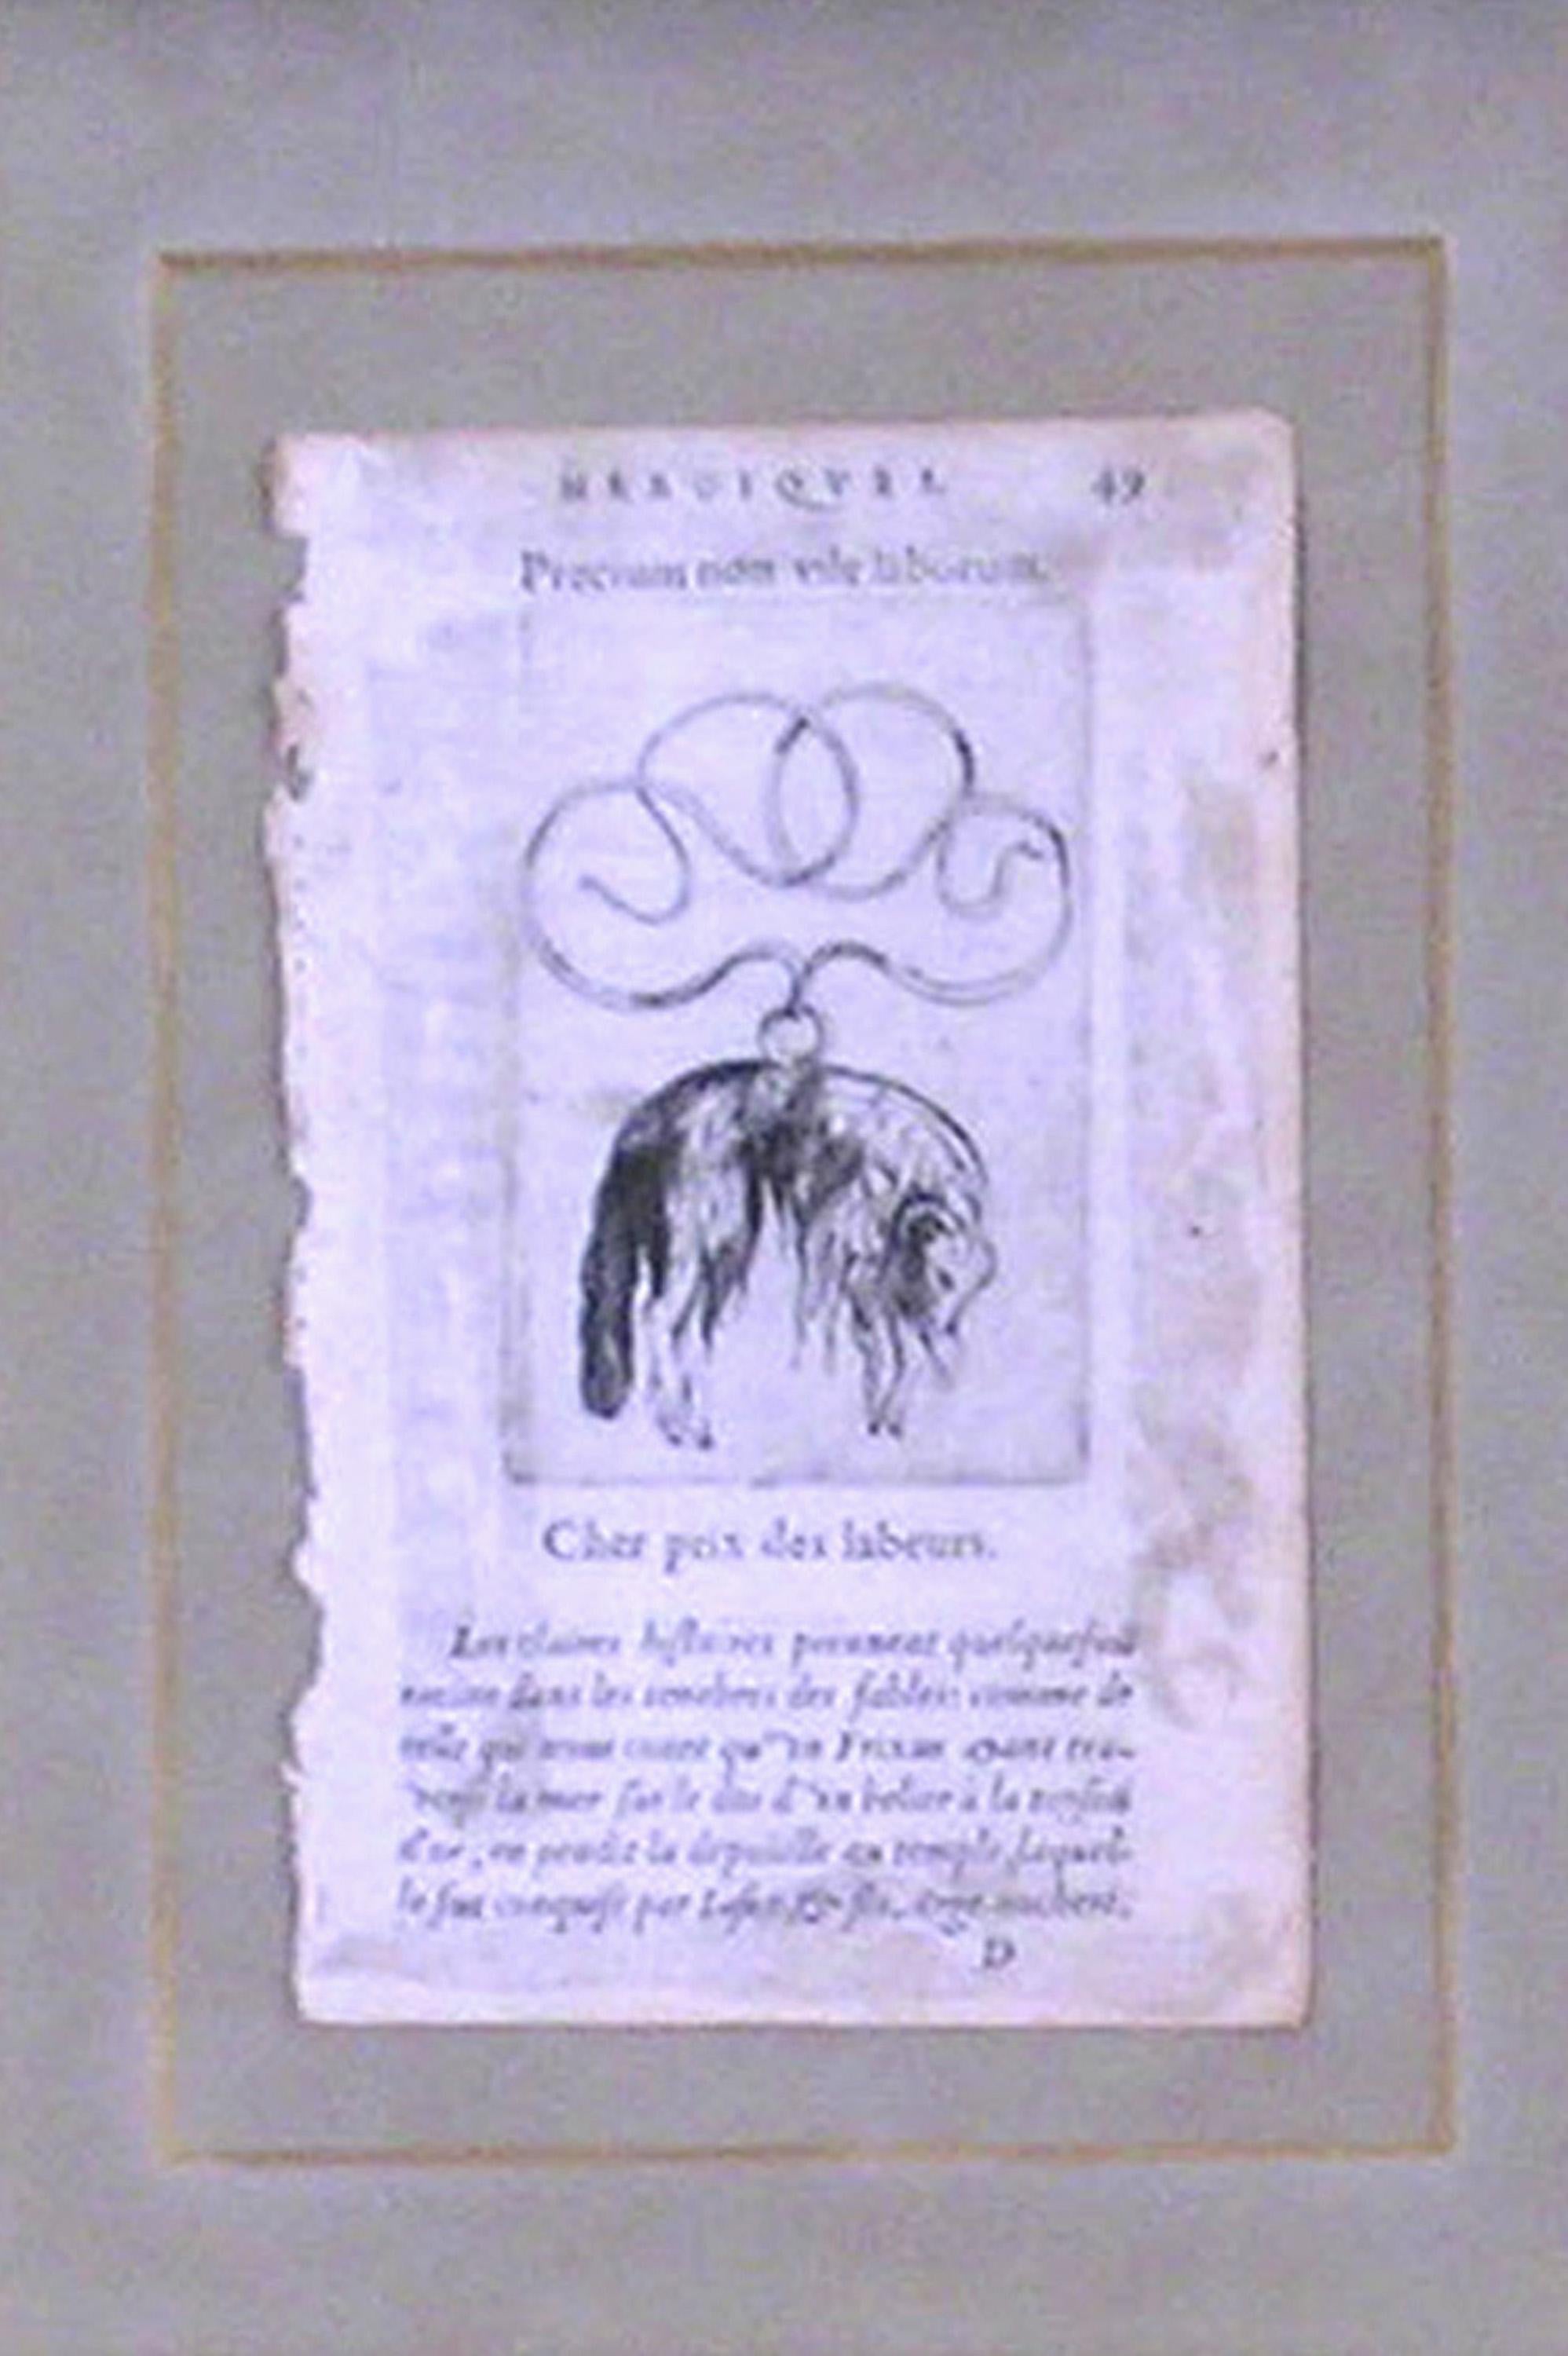 HEROIQVES. 49
Precium non vile laborum.
Cher prix des labeurs.
Les claires histoires prennent quelquefois
dans les tenebres des fables: comme de
celle qui nous conte qu'vn Frixus ayant tra-
versé la mer sur le dos d'vn belier à la toyson
d'or, en pendit la depouille au temple, laquel-
le fut conquise par Iason
D